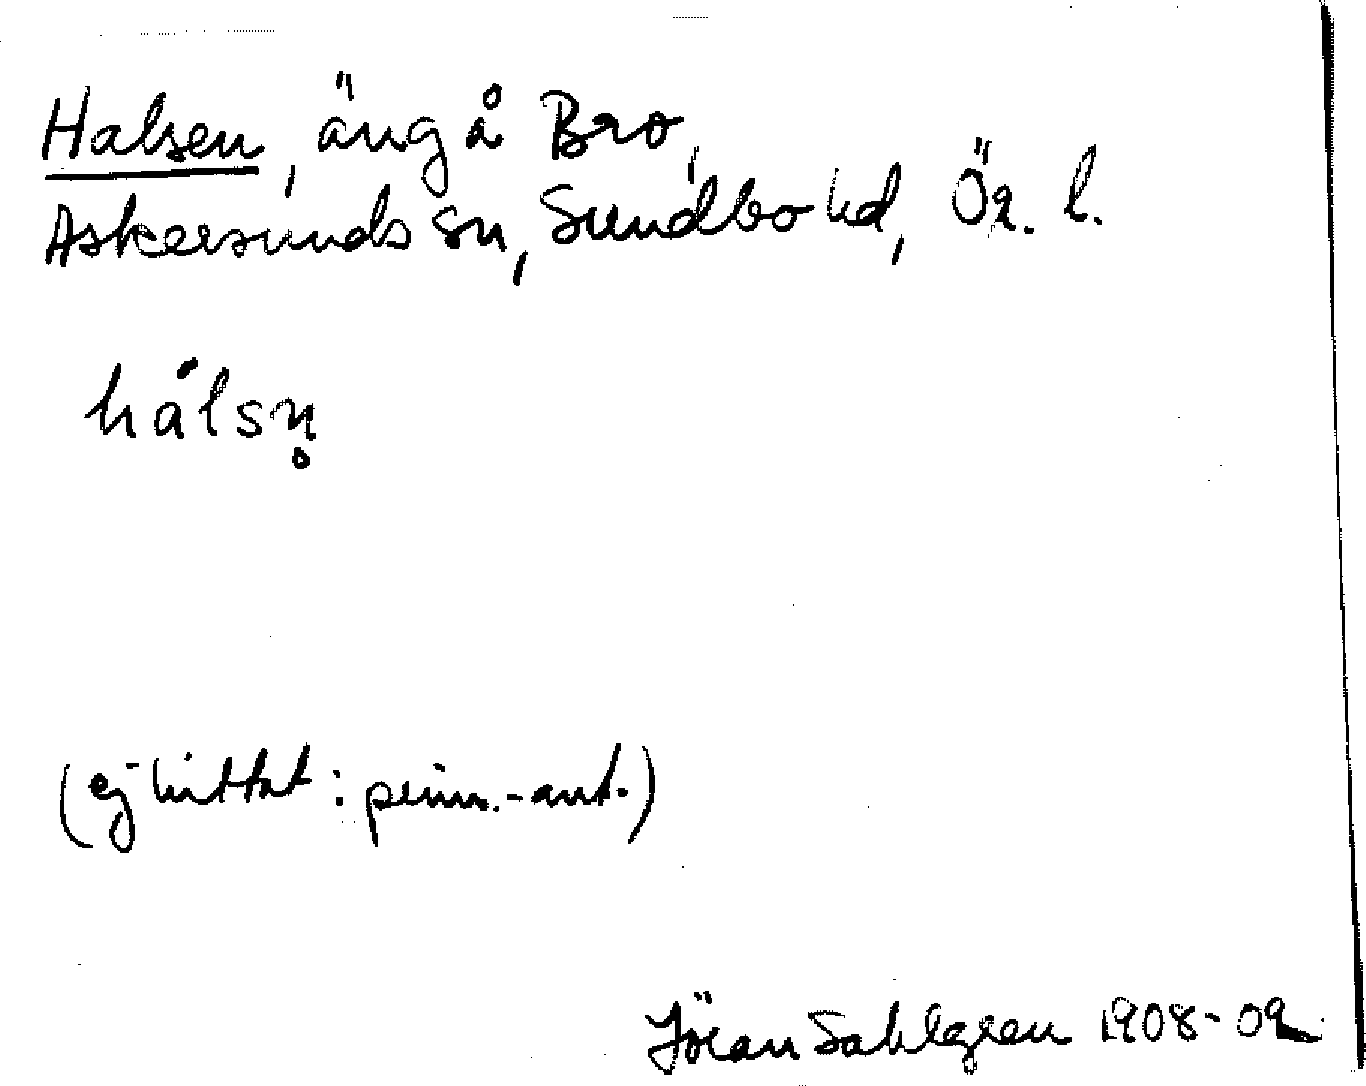 Halsen, äng å Bro,
Askersunds sn, Sundbo hd, Ör. l.
hálsn̥
(ej hittat: pinn.-ant.)
Jöran Sahlgren 1908-09